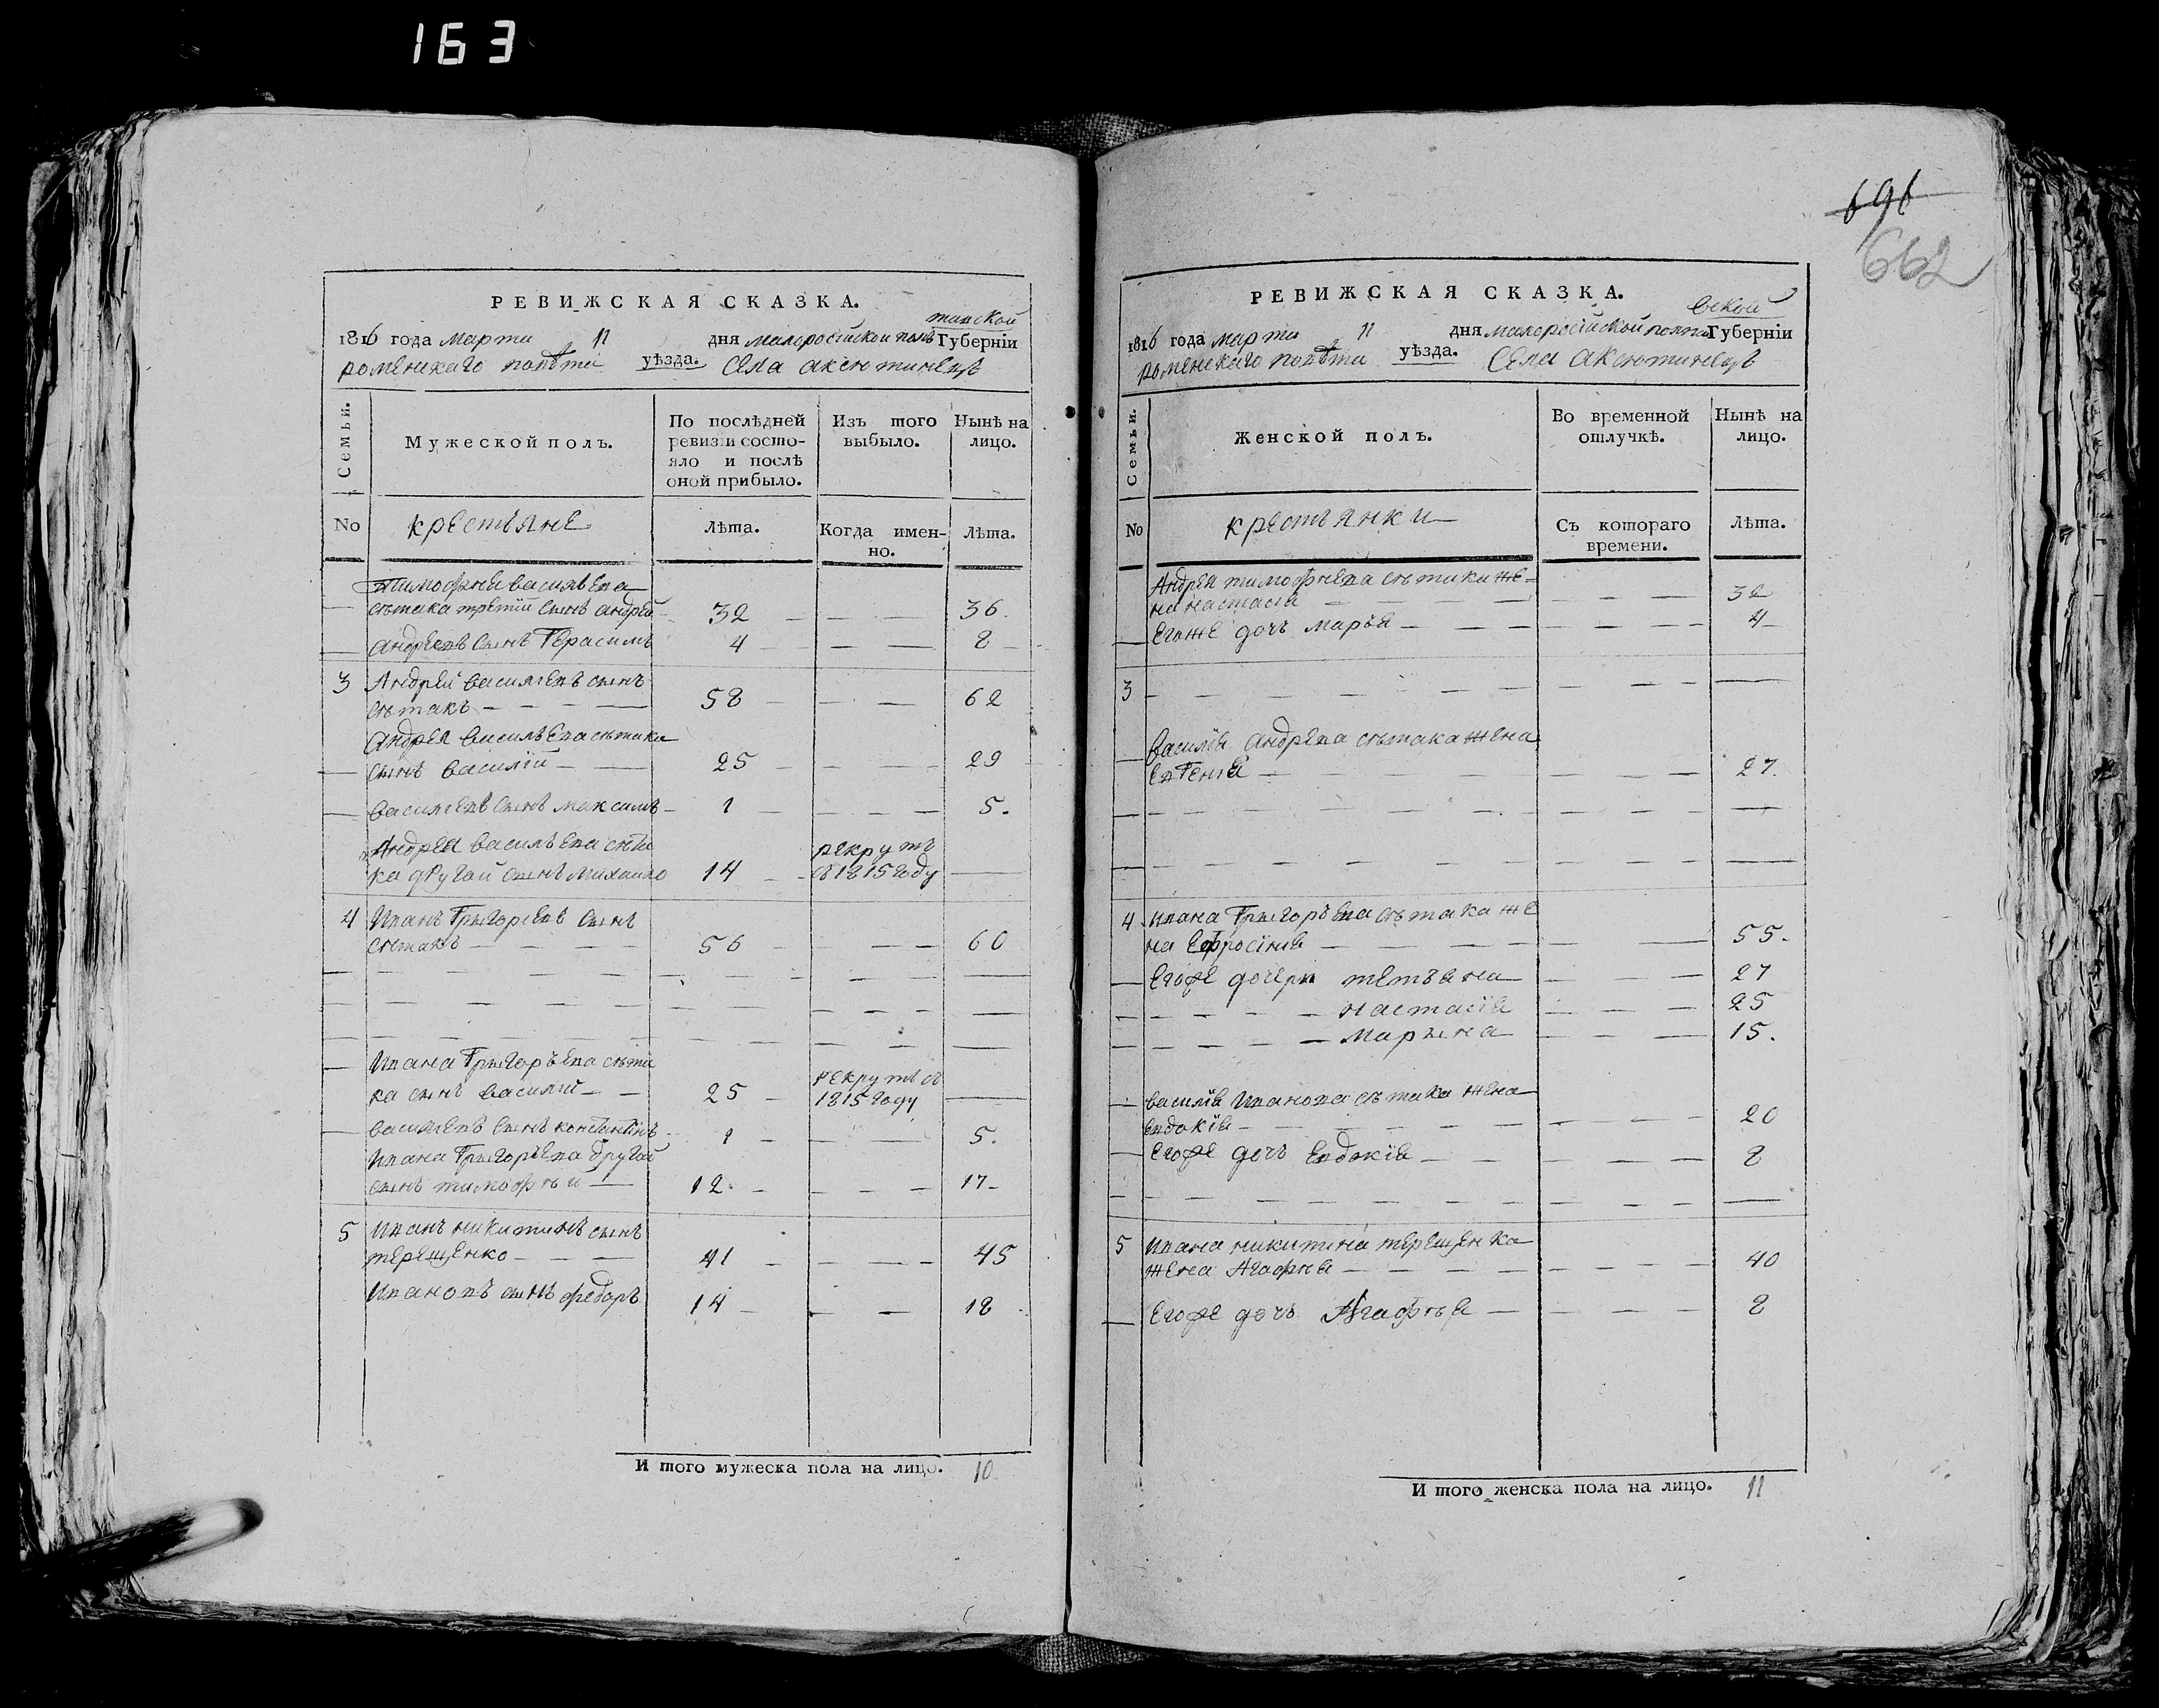 163
696
662
РЕВИЖСКАЯ СКАЗКА.
тавской
1816 года марта 11 дня малоросійской пол Губерніи
роменскаго повѣта уѣзда. Села аксютинецъ
Семьи.
Мужеской полъ.
По послѣдней ревизіи состояло и послѣ оной прибыло.
Изъ того выбыло.
Нынѣ на лицо.
No крестьяне лѣта. Когда именно. Лѣта.
Тимофѣя васильева
сѣтака третій сынъ андрей 32 — — 36
андреевъ сынъ Герасимъ 4 — — 8
3 Андрей васильевъ сынъ
сѣтакъ — — — 58 — — 62
Андрея васильева сѣтака
сынъ василій — — 25 — — 29
васильевъ сынъ максимъ — 1 — — 5.
Андрея васильева сѣта
ка другой сынъ михайло 14 рекрутъ
въ 1815 году —
4 Иванъ Григорьевъ сынъ
сѣтакъ — — — 56 — — 60
Ивана Григорьева сѣта
ка сынъ василій — — 25 рекрутъ въ
1815 году —
васильевъ сынъ константинъ 1 — — 5.
Ивана Григорьева другой
сынъ тимофѣй — 12 — — 17
5 Иванъ никитинъ сынъ
терещенко — — — 41 — — 45
Ивановъ сынъ федоръ 14 — — 18
И того мужеска пола на лицо. 10
РЕВИЖСКАЯ СКАЗКА.
вской
1816 года марта 11 дня малоросійской полта Губерніи
роменскаго повѣта уѣзда. Села аксютинецъ
Семьи.
Женской полъ.
Во временной отлучкѣ.
Нынѣ на лицо.
No крестьянки Съ котораго времени. Лѣта.
Андрея тимофѣева сѣтака же-
на настасія — — — 32
Егоже дочъ марья — — — 4
3 — — — —
василія андреева сѣтака жена
евгенія — — — 27.
4 Ивана Григорьева сѣтака же
на Ефросинія — — — 55.
Егоже дочери тетьяна — — 27
— — — настасія — — 25
— — — марына — — 15.
василія Иванова сѣтака жена
евдокія — — — 20
Егоже дочъ Евдокія — — — 8
5 Ивана никитина терещенка
жена Агафія — — — 40
Егоже дочъ Агафья — — — 8
И того женска пола на лицо. 11